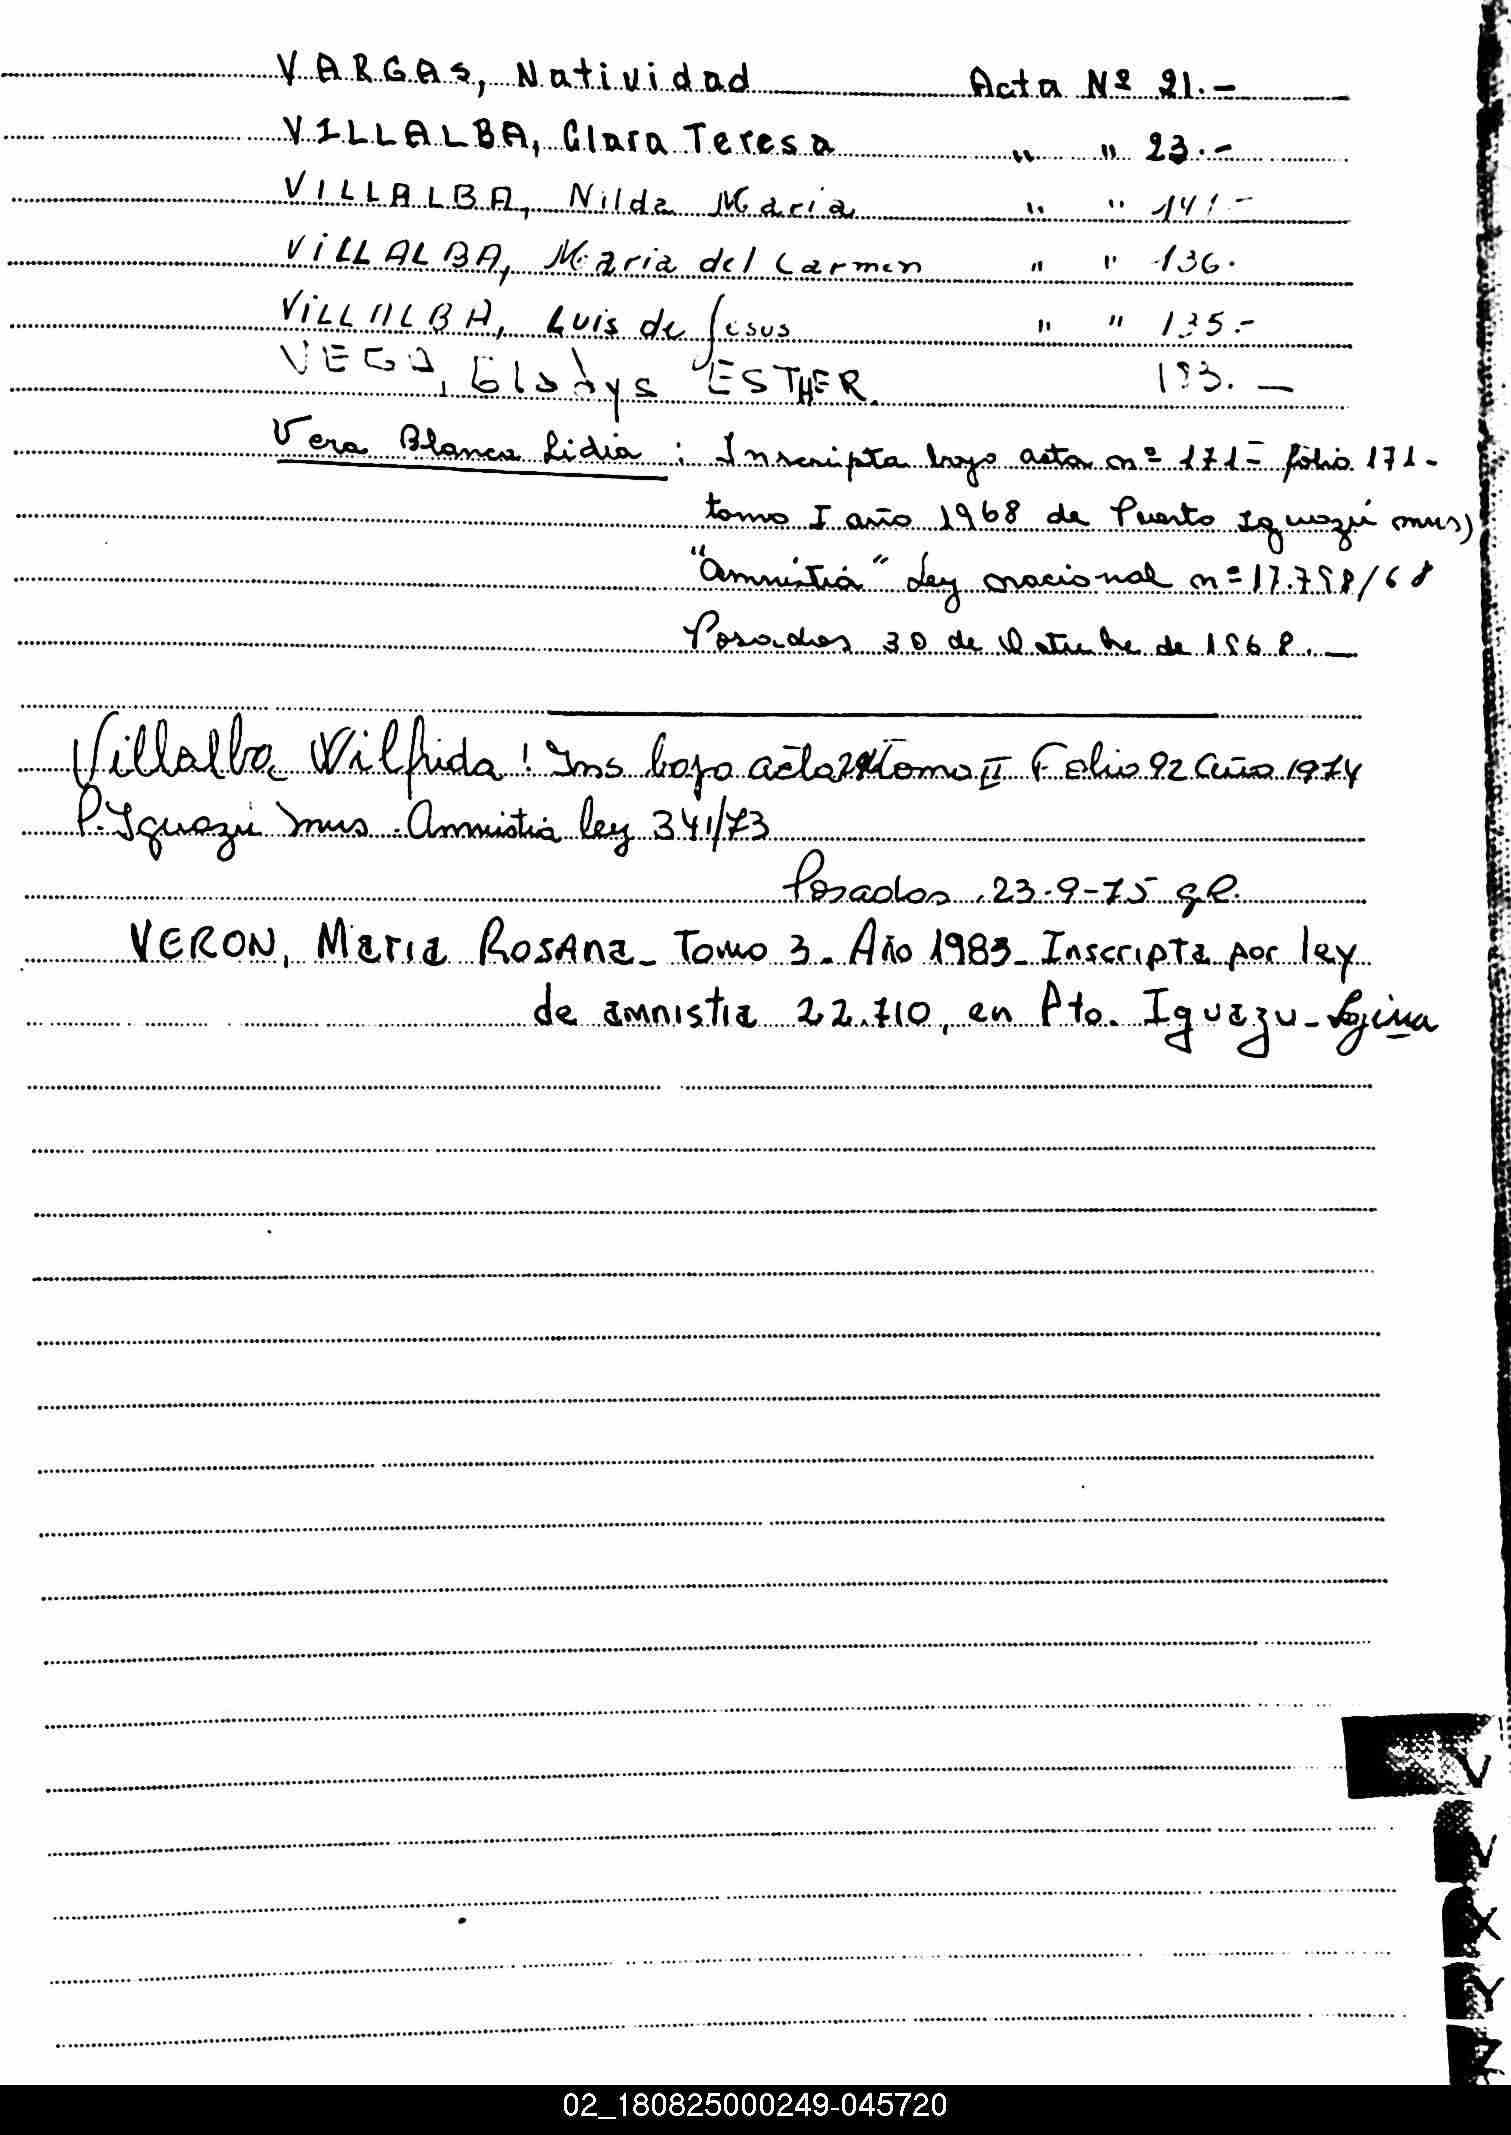 VARGAS, Natividad Acta Nº 21.-
VILLALBA, Clara Teresa " " 23.-
VILLALBA, Nilda Maria " " 141-
VILLALBA, Maria del Carmen " " 136.
VILLALBA, Luis de Jesus " " 135.-
VEGA, Gladys ESTHER. 193.-
Vera Blanca Lidia : Inscripta bajo acta nº 171- folio 171-
tomo I año 1968 de Puerto Iguazú mns)
"Amnistia" Ley nacional nº 17.798/68
Posadas 30 de Octubre de 1968.-
Villalba Wilfrida ! Ins bajo acta Tomo II Folio 92 Año 1974
P. Iguazú mns. Amnistia ley 341/73
Posadas, 23-9-75
VERON, Maria Rosana- Tomo 3. Año 1983- Inscripta por ley
de amnistia 22.710, en Pto. Iguazu-
V
V
X
Y
Z
02_180825000249-045720